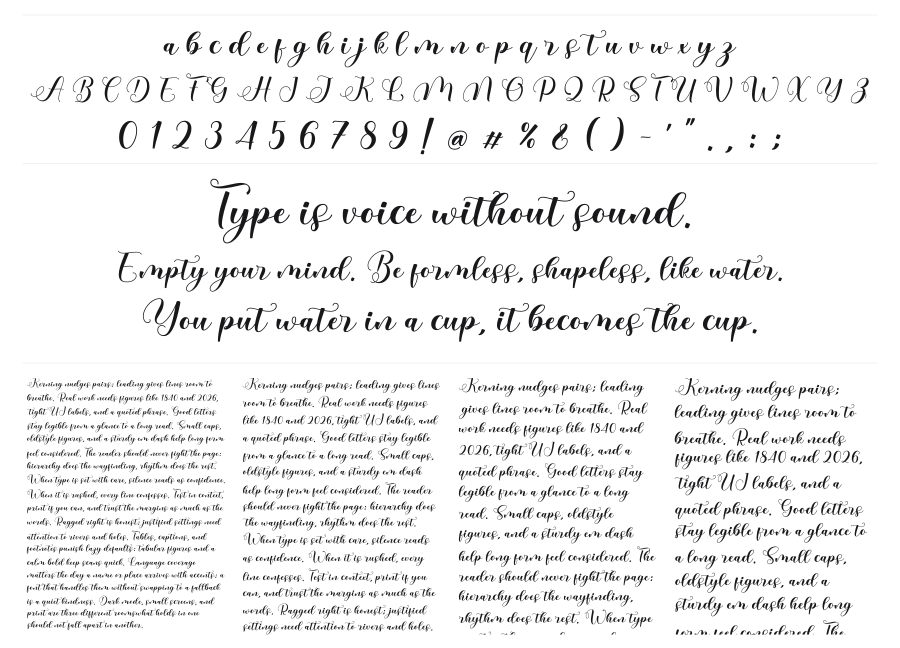 a b c d e f g h i j k l m n o p q r s t u v w x y z
A B C D E F G H I J K L M N O P Q R S T U V W X Y Z
0 1 2 3 4 5 6 7 8 9 ! @ # % & ( ) - ' " . , : ;
Type is voice without sound.
Empty your mind. Be formless, shapeless, like water.
You put water in a cup, it becomes the cup.
Kerning nudges pairs; leading gives lines room to
breathe. Real work needs figures like 1840 and 2026,
tight UI labels, and a quoted phrase. Good letters
stay legible from a glance to a long read. Small caps,
oldstyle figures, and a sturdy em dash help long form
feel considered. The reader should never fight the page:
hierarchy does the wayfinding, rhythm does the rest.
When type is set with care, silence reads as confidence.
When it is rushed, every line confesses. Test in context,
print if you can, and trust the margins as much as the
words. Ragged right is honest; justified settings need
attention to rivers and holes. Tables, captions, and
footnotes punish lazy defaults: tabular figures and a
calm bold keep scans quick. Language coverage
matters the day a name or place arrives with accents; a
font that handles them without swapping to a fallback
is a quiet kindness. Dark mode, small screens, and
print are three different rooms: what holds in one
should not fall apart in another.
Kerning nudges pairs; leading gives lines
room to breathe. Real work needs figures
like 1840 and 2026, tight UI labels, and
a quoted phrase. Good letters stay legible
from a glance to a long read. Small caps,
oldstyle figures, and a sturdy em dash
help long form feel considered. The reader
should never fight the page: hierarchy does
the wayfinding, rhythm does the rest.
When type is set with care, silence reads
as confidence. When it is rushed, every
line confesses. Test in context, print if you
can, and trust the margins as much as the
words. Ragged right is honest; justified
settings need attention to rivers and holes.
Kerning nudges pairs; leading
gives lines room to breathe. Real
work needs figures like 1840 and
2026, tight UI labels, and a
quoted phrase. Good letters stay
legible from a glance to a long
read. Small caps, oldstyle
figures, and a sturdy em dash
help long form feel considered. The
reader should never fight the page:
hierarchy does the wayfinding,
rhythm does the rest. When type
Kerning nudges pairs;
leading gives lines room to
breathe. Real work needs
figures like 1840 and 2026,
tight UI labels, and a
quoted phrase. Good letters
stay legible from a glance to
a long read. Small caps,
oldstyle figures, and a
sturdy em dash help long
form feel considered. The